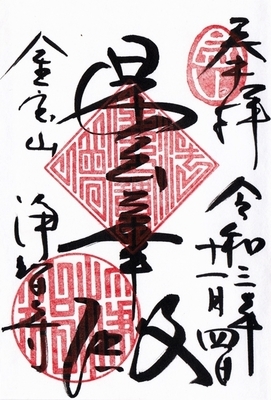 奉拝
令和三年
十一月四日
曇華殿
金宝山
浄智寺